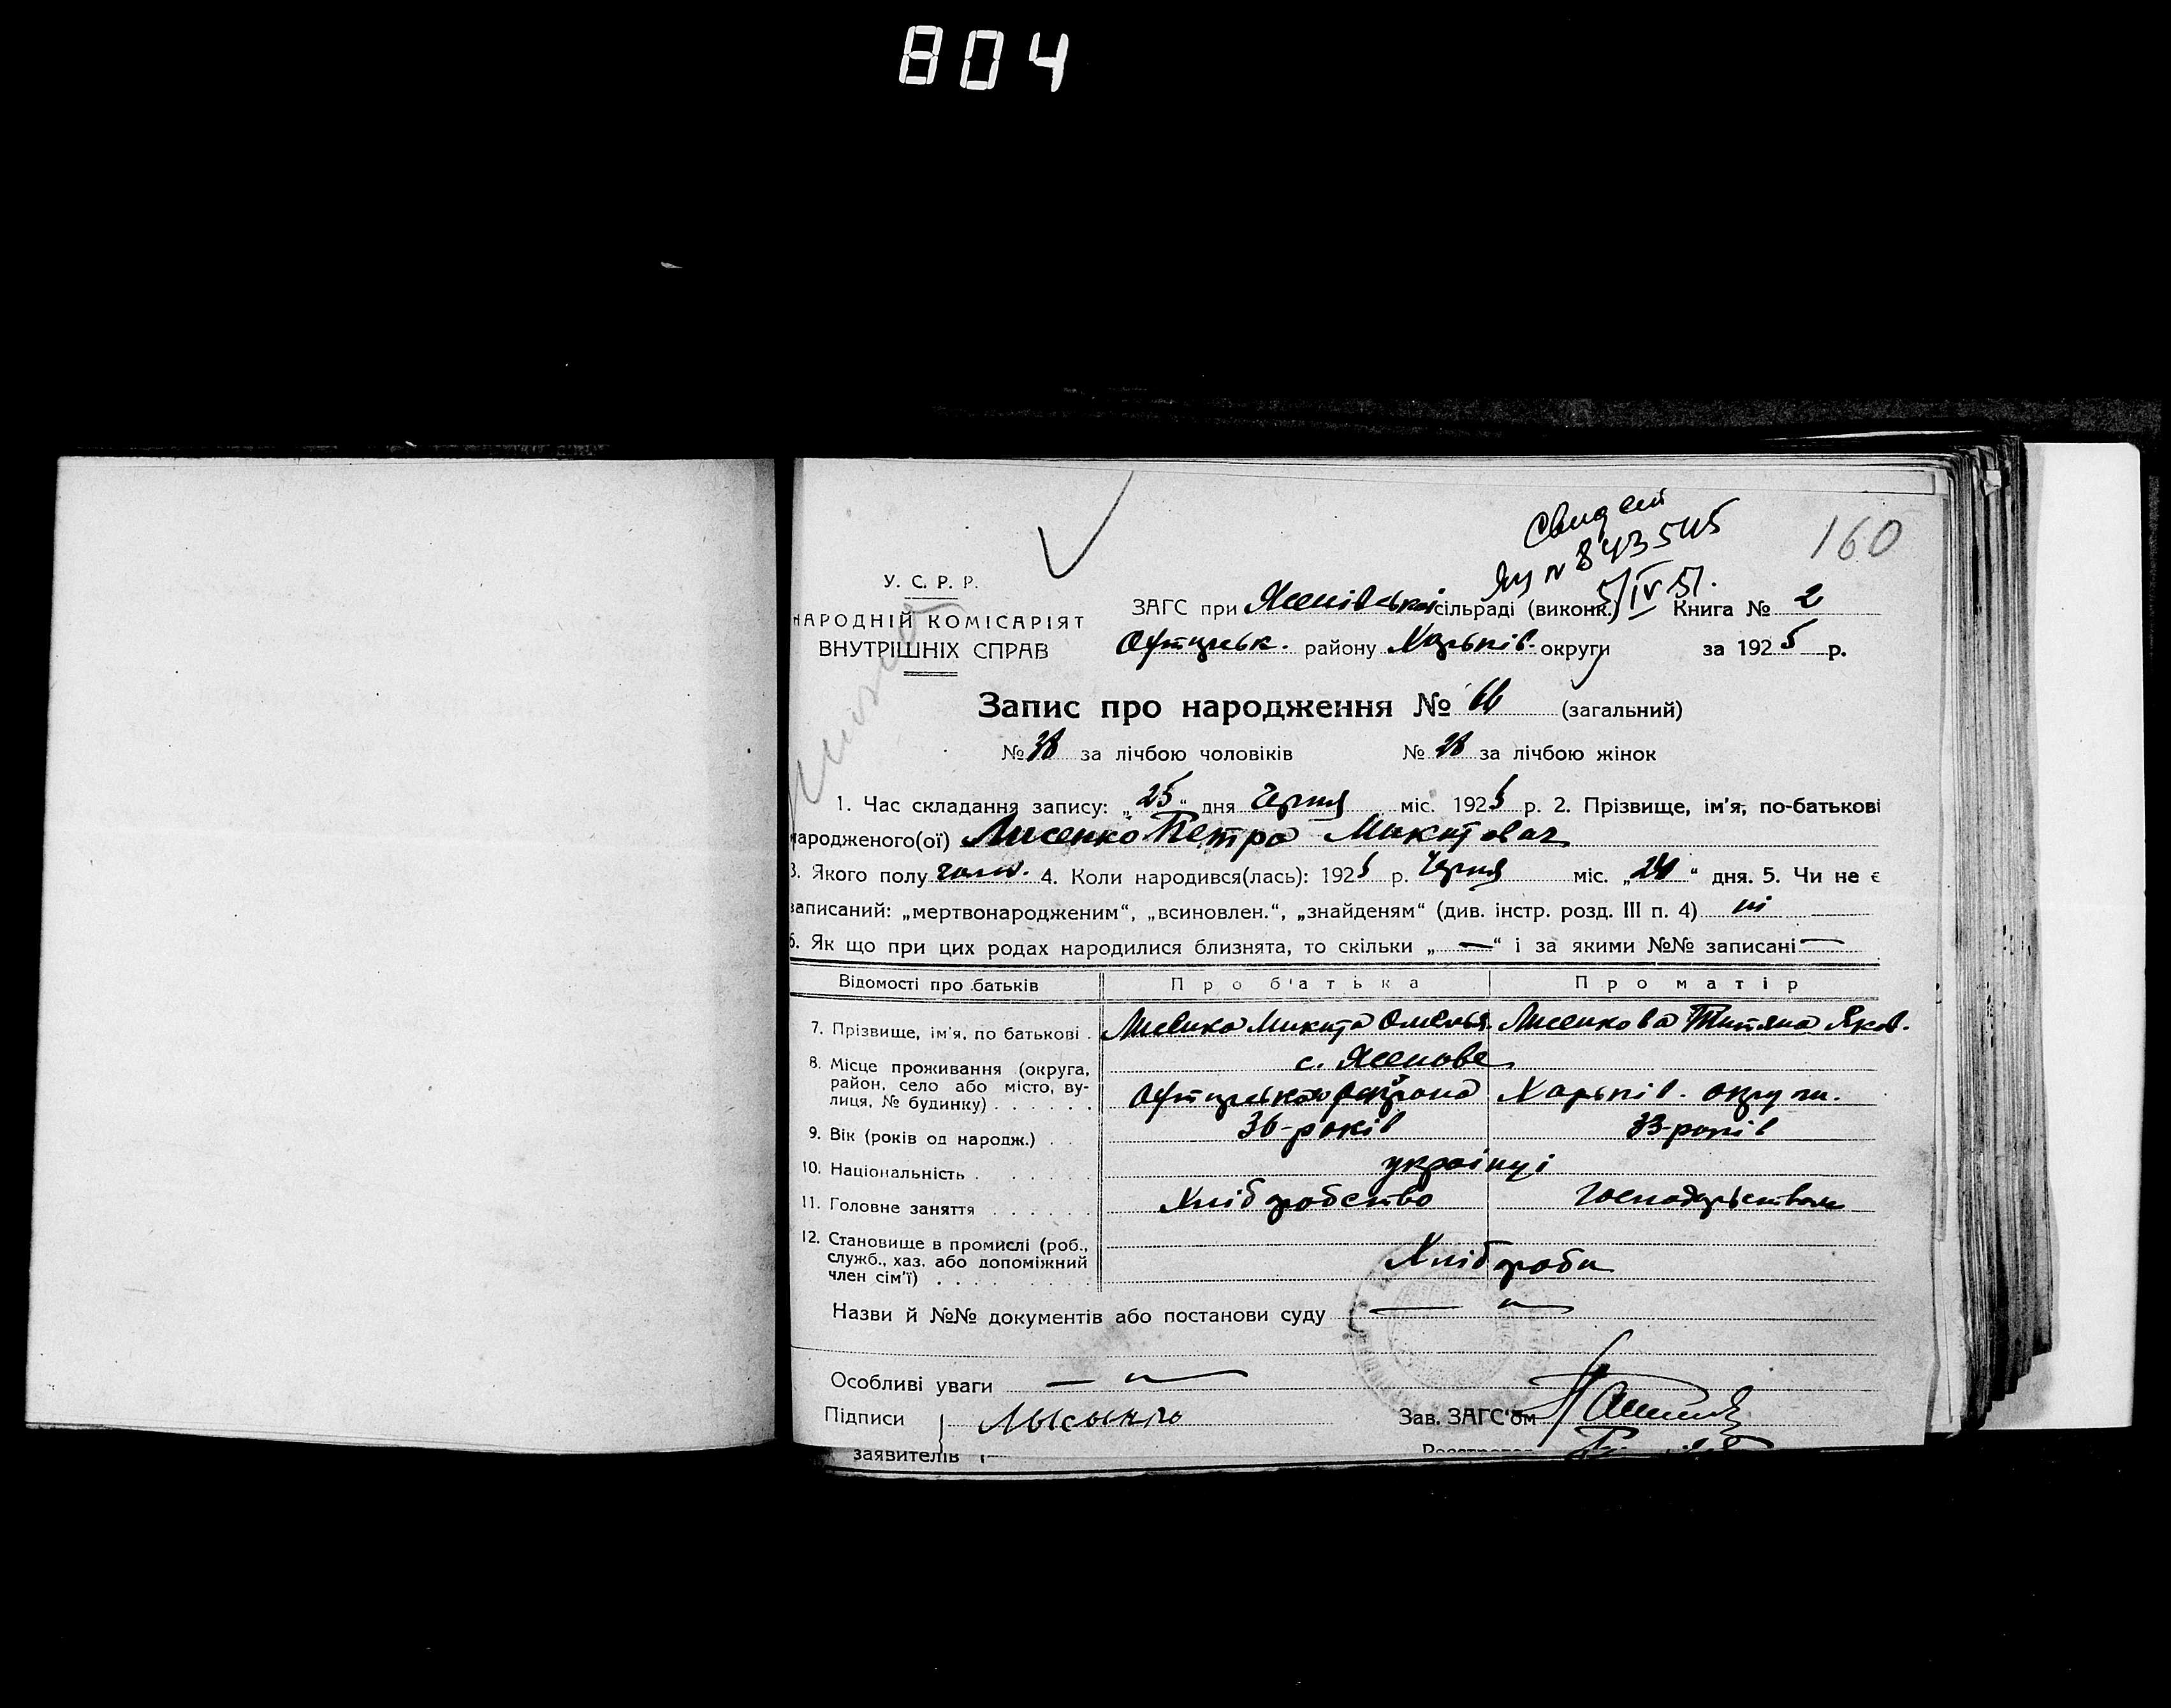 804
Свидет
ЯЩ № 843545
5/IV 51.
160
У. С. Р. Р.
НАРОДНІЙ КОМІСАРІЯТ
ВНУТРІШНІХ СПРАВ
ЗАГС при Ясенівській сільраді (виконк.) Книга № 2
району Харьків. округи за 1925 р.
Запис про народження № 66 (загальний)
№ 38 за лічбою чоловіків № 28 за лічбою жінок
1. Час складання запису: „25“ дня Черня міс. 1925 р. 2. Прізвище, ім’я, по-батькові
народженого(ої) Лисенко Петро Микитович
3. Якого полу чолов. 4. Коли народився(лась): 1925 р. Черня міс. „24“ дня. 5. Чи не є
записаний: „мертвонародженим“, „всиновлен.“, „знайденям“ (див. інстр. розд. III п. 4) ні
6. Як що при цих родах народилися близнята, то скільки „—“ і за якими №№ записані —
Відомості про батьків Про батька Про матір
7. Прізвище, ім’я, по батькові . Лисенко Микита Омельян. Лисенкова Титяна Яков.
8. Місце проживання (округа, район, село або місто, вулиця, № будинку) . . . . . . с. Ясенове
района Харьків. округи.
9. Вік (років од народж.) . . 36-років 33-років
10. Національність . . . . . . . українці
11. Головне заняття . . . . . . Хліборобство Господарством
12. Становище в промислі (роб., служб., хаз. або допоміжний член сім’ї) . . . . Хлібороби
Назви й №№ документів або постанови суду — „ —
Особливі уваги — „ —
Підписи Лысынко Зав. ЗАГС‘ом
заявителів